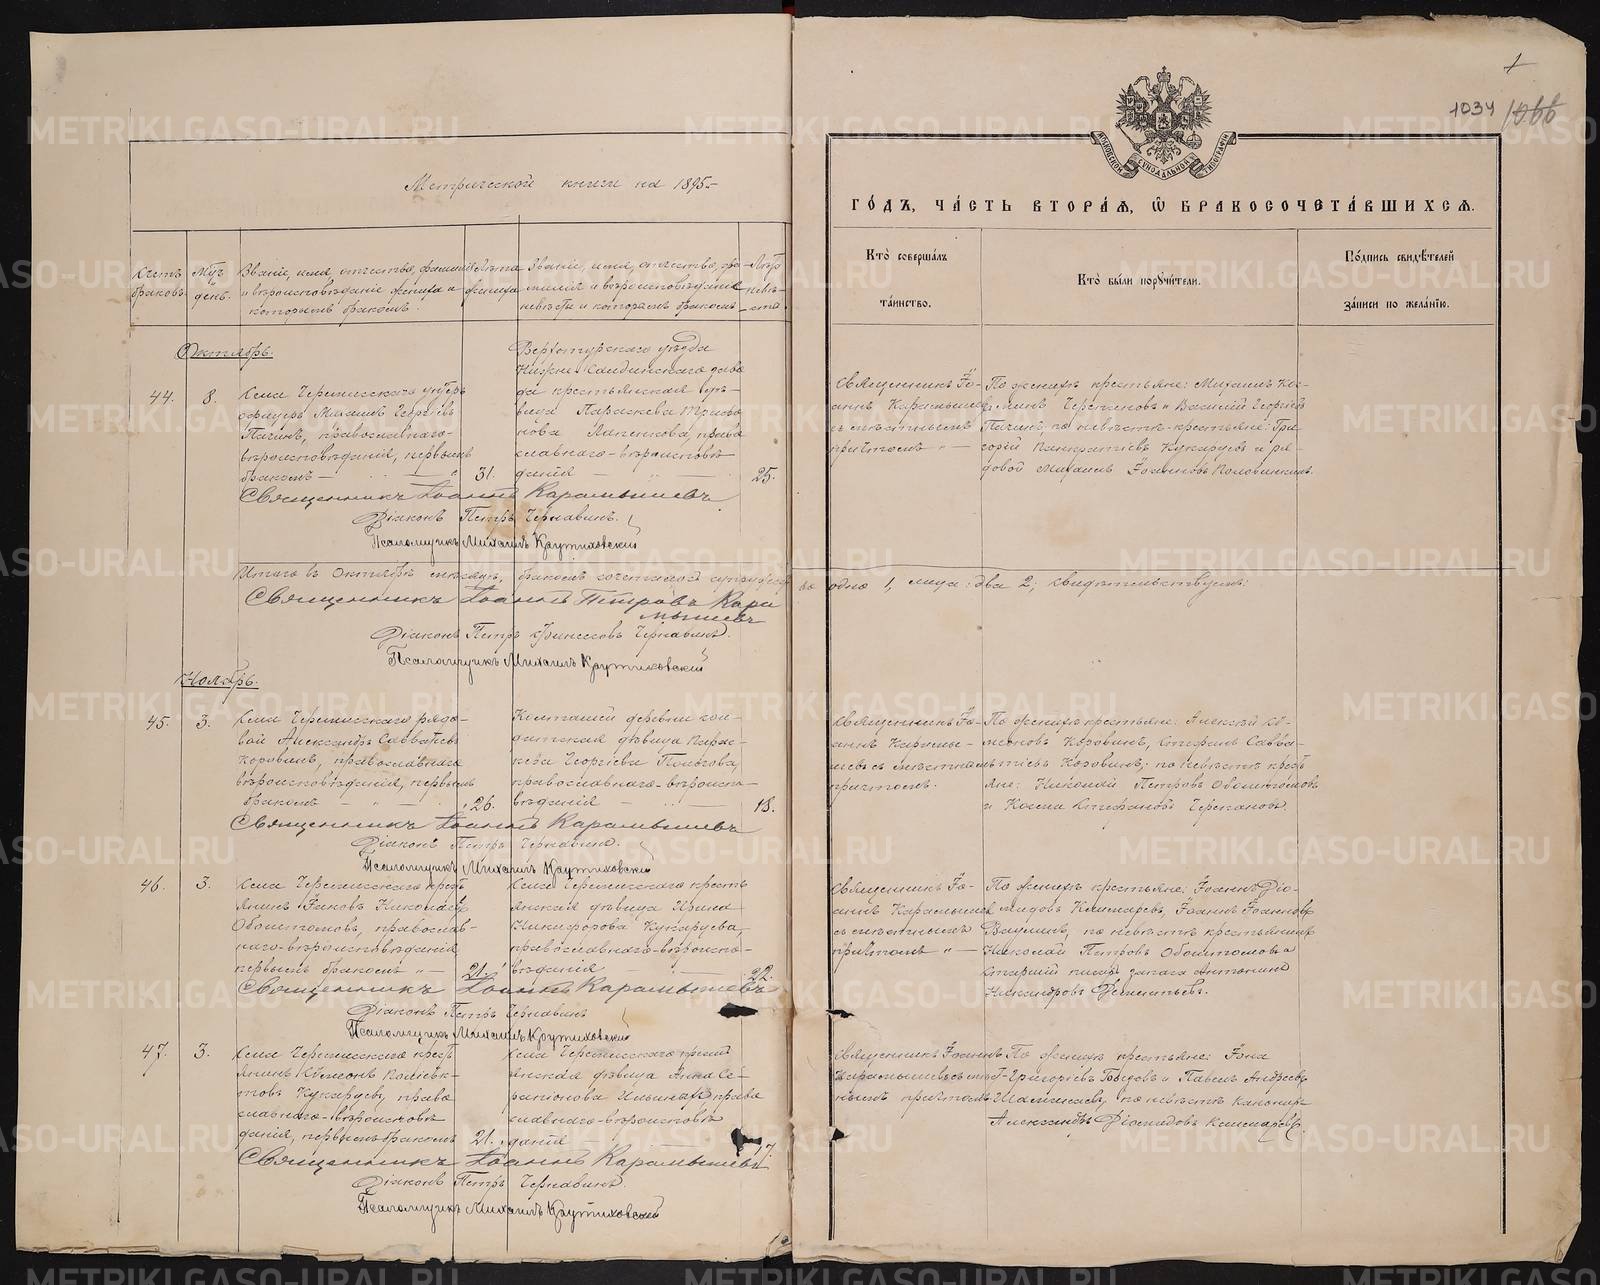 1034
Метрической книги на 1895
МОСКОВСКОЙ СѴНОДАЛЬНОЙ ТИПОГРАФІИ
ГОДЪ, ЧАСТЬ ВТОРАЯ, Ѡ БРАКОСОЧЕТАВШИХСЯ.
Счетъ браковъ
Мѣс. день.
Званіе, имя, отчество, фамилія
и вѣроисповѣданіе жениха и
которымъ бракомъ.
Лѣта жениха
Званіе, имя, отчество, фа-
милія и вѣроисповѣданіе
невѣсты и которымъ бракомъ
Лѣта невѣсты
Кто совершалъ
таинство.
Кто были поручители.
Подпись свидѣтелей
записи по желанію.
Октябрь.
44.
8.
Села Черемисскаго унтеръ
офицеръ Михаилъ Георгіевъ
Пагинъ, православнаго
вѣроисповѣданія, первымъ
бракомъ
31.
Верхотурскаго уѣзда
Нижне Салдинскаго заво
да крестьянская дѣ-
вица Параскева Трифо
нова Лапенкова, право
славнаго вѣроисповѣ
данія
25.
Священникъ Іо-
аннъ Карамышевъ
съ мѣстнымъ
причтомъ
По женихѣ крестьяне: Михаилъ Кос-
минъ Черепановъ и Василій Георгіевъ
Пагинъ, по невѣстѣ крестьяне: Гри-
горій Панкратіевъ Кукарцевъ и ря-
довой Михаилъ Іоанновъ Половинкинъ.
Священникъ Іоаннъ Карамышевъ
Діаконъ Петръ Чернавинъ.
Псаломщикъ Михаилъ Крутиховский
Итого въ Октябрѣ мѣсяцѣ, бракомъ сочеталось супружествъ
во одно 1, лица: два 2; свидѣтельствуемъ:
Священникъ Іоаннъ Петровъ Кара
мышевъ
Діаконъ Петръ Чернавинъ.
Псаломщикъ Михаилъ Крутиховский
Ноябрь.
45.
3.
Села Черемисскаго рядо-
вой Александръ Савватіевъ
Коровинъ, православнаго
вѣроисповѣданія, первымъ
бракомъ
26.
деревни кре-
стьянская дѣвица Парас-
кева Георгіева
православнаго вѣроиспо-
вѣданія
18.
Священникъ Іо-
аннъ Карамы-
шевъ съ мѣстнымъ
причтомъ.
По женихѣ крестьяне: Алексѣй Сѵ-
меоновъ Коровинъ, Стефанъ Савва-
тіевъ Коровинъ; по невѣстѣ кресть
яне: Николай Петровъ Обоимтомовъ
и Косма Стефановъ Черепановъ.
Священникъ Іоаннъ Карамышевъ
Діаконъ Петръ Чернавинъ.
Псаломщикъ Михаилъ Крутиховский
46.
3.
Села Черемисскаго кресть
янинъ Іаковъ Николаевъ
православ-
наго вѣроисповѣданія
первымъ бракомъ
21.
Села Черемисскаго кресть
янская дѣвица Ирина
Никифорова Кукарцева,
православнаго вѣроиспо-
вѣданія
22.
Священникъ Іо-
аннъ Карамышевъ
съ мѣстнымъ
причтомъ
По женихѣ крестьяне: Іоаннъ Діо-
мидовъ Клишаревъ, Іоаннъ Іоанновъ
по невѣстѣ крестьянинъ
Николай Петровъ
Старшій писарь запаса Антонинъ
Никандровъ
Священникъ Іоаннъ Карамышевъ
Діаконъ Петръ Чернавинъ
Псаломщикъ Михаилъ Крутиховский
47.
3.
Села Черемисскаго кресть
янинъ Сѵмеонъ Поліевк-
товъ Кукарцевъ, право
славнаго вѣроисповѣ
данія, первымъ бракомъ
21.
Села Черемисскаго кресть
янская дѣвица Анна Се-
рапіонова Ильина, право
славнаго вѣроисповѣ
данія
17.
Священникъ Іоаннъ
Карамышевъ съ мѣст
нымъ причтомъ
По женихѣ крестьяне: Іона
Григоріевъ и Павелъ Андреевъ
Шамаевъ, по невѣстѣ канониръ
Александръ Діомидовъ Клишаревъ.
Священникъ Іоаннъ Карамышевъ
Діаконъ Петръ Чернавинъ.
Псаломщикъ Михаилъ Крутиховский
METRIKI.GASO-URAL.RU